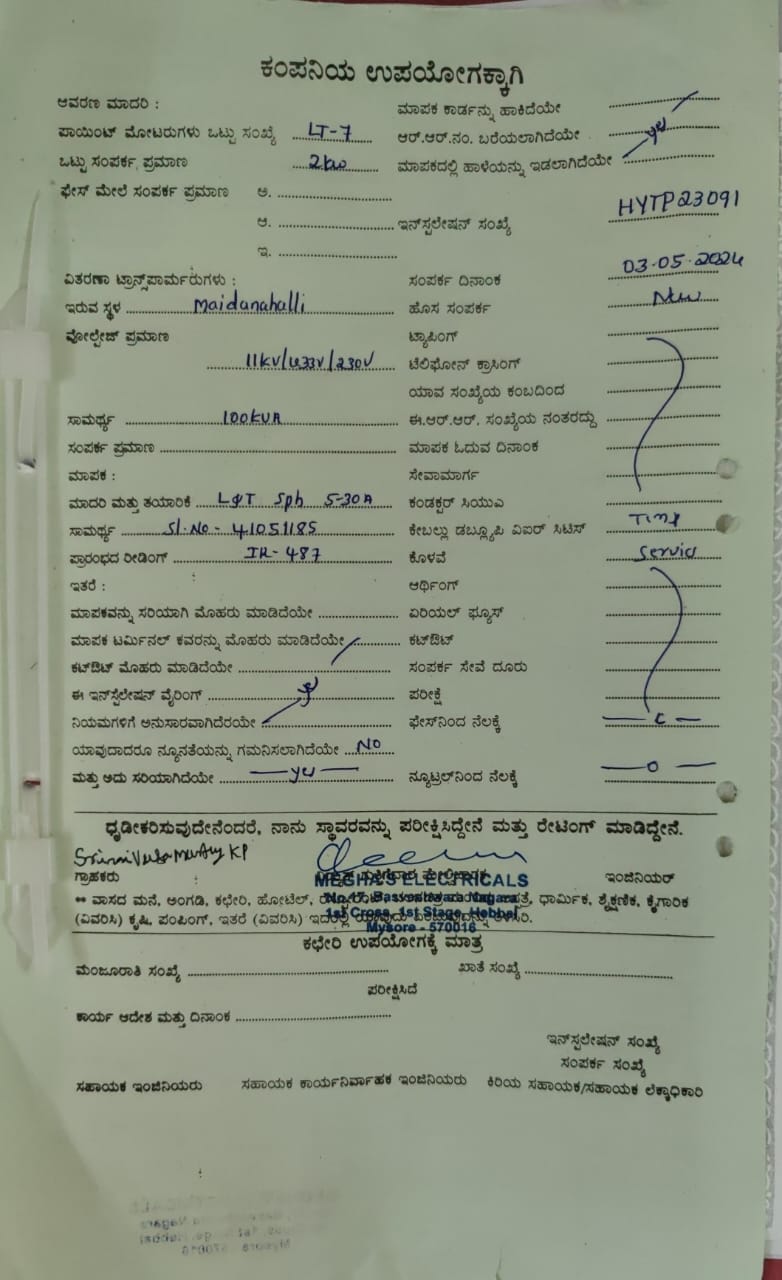 ಕಂಪನಿಯ ಉಪಯೋಗಕ್ಕಾಗಿ
ಆವರಣ ಮಾದರಿ : ಮಾಪಕ ಕಾರ್ಡನ್ನು ಹಾಕಿದೆಯೇ
ಪಾಯಿಂಟ್ ಮೋಟರುಗಳು ಒಟ್ಟು ಸಂಖ್ಯೆ LT-7 ಆರ್.ಆರ್.ನಂ. ಬರೆಯಲಾಗಿದೆಯೇ
ಒಟ್ಟು ಸಂಪರ್ಕ ಪ್ರಮಾಣ 2kw ಮಾಪಕದಲ್ಲಿ ಹಾಳೆಯನ್ನು ಇಡಲಾಗಿದೆಯೇ
ಫೇಸ್ ಮೇಲೆ ಸಂಪರ್ಕ ಪ್ರಮಾಣ ಅ.
ಆ. ಇನ್‌ಸ್ಟಲೇಷನ್ ಸಂಖ್ಯೆ HYTP23091
ಇ.
ವಿತರಣಾ ಟ್ರಾನ್ಸ್‌ಪಾರ್ಮರುಗಳು : ಸಂಪರ್ಕ ದಿನಾಂಕ 03-05-2024
ಇರುವ ಸ್ಥಳ Maidanahalli ಹೊಸ ಸಂಪರ್ಕ New
ವೋಲ್ಟೇಜ್ ಪ್ರಮಾಣ ಟ್ಯಾಪಿಂಗ್
11KV/433V/230V ಟೆಲಿಫೋನ್ ಕ್ರಾಸಿಂಗ್
ಯಾವ ಸಂಖ್ಯೆಯ ಕಂಬದಿಂದ
ಸಾಮರ್ಥ್ಯ 100KVA ಈ.ಆರ್.ಆರ್. ಸಂಖ್ಯೆಯ ನಂತರದ್ದು
ಸಂಪರ್ಕ ಪ್ರಮಾಣ ಮಾಪಕ ಓದುವ ದಿನಾಂಕ
ಮಾಪಕ : ಸೇವಾಮಾರ್ಗ
ಮಾದರಿ ಮತ್ತು ತಯಾರಿಕೆ L&T Sph 5-30A ಕಂಡಕ್ಟರ್ ಸಿಯುಎ
ಸಾಮರ್ಥ್ಯ Sl.No- 41051185 ಕೇಬಲ್ಲು ಡಬ್ಲ್ಯೂಪಿ ವಿಐರ್ ಸಿಟಿಸ್
ಪ್ರಾರಂಭದ ರೀಡಿಂಗ್ IR-487 ಕೊಳವೆ Service
ಇತರೆ : ಆರ್ಥಿಂಗ್
ಮಾಪಕವನ್ನು ಸರಿಯಾಗಿ ಮೊಹರು ಮಾಡಿದೆಯೇ ಏರಿಯಲ್ ಫ್ಯೂಸ್
ಮಾಪಕ ಟರ್ಮಿನಲ್ ಕವರನ್ನು ಮೊಹರು ಮಾಡಿದೆಯೇ ಕಟ್‌ಔಟ್
ಕಟ್‌ಔಟ್ ಮೊಹರು ಮಾಡಿದೆಯೇ ಸಂಪರ್ಕ ಸೇವೆ ದೂರು
ಈ ಇನ್‌ಸ್ಟೆಲೇಷನ್ ವೈರಿಂಗ್ ಪರೀಕ್ಷೆ
ನಿಯಮಗಳಿಗೆ ಅನುಸಾರವಾಗಿದೆರಯೇ ಫೇಸ್‌ನಿಂದ ನೆಲಕ್ಕೆ
ಯಾವುದಾದರೂ ನ್ಯೂನತೆಯನ್ನು ಗಮನಿಸಲಾಗಿದೆಯೇ NO
ಮತ್ತು ಅದು ಸರಿಯಾಗಿದೆಯೇ yes ನ್ಯೂಟ್ರಲ್‌ನಿಂದ ನೆಲಕ್ಕೆ
ಧೃಡೀಕರಿಸುವುದೇನೆಂದರೆ, ನಾನು ಸ್ಥಾವರವನ್ನು ಪರೀಕ್ಷಿಸಿದ್ದೇನೆ ಮತ್ತು ರೇಟಿಂಗ್ ಮಾಡಿದ್ದೇನೆ.
ಗ್ರಾಹಕರು ಇಂಜಿನಿಯರ್
MEGHA'S ELECTRICALS
** ವಾಸದ ಮನೆ, ಅಂಗಡಿ, ಕಛೇರಿ, ಹೋಟೆಲ್, ಧಾರ್ಮಿಕ, ಶೈಕ್ಷಣಿಕ, ಕೈಗಾರಿಕ
(ವಿವರಿಸಿ) ಕೃಷಿ, ಪಂಪಿಂಗ್, ಇತರೆ (ವಿವರಿಸಿ)
1st Cross, 1st Stage, Hebbal
Mysore - 570016
ಕಛೇರಿ ಉಪಯೋಗಕ್ಕೆ ಮಾತ್ರ
ಮಂಜೂರಾತಿ ಸಂಖ್ಯೆ ಖಾತೆ ಸಂಖ್ಯೆ
ಪರೀಕ್ಷಿಸಿದೆ
ಕಾರ್ಯ ಆದೇಶ ಮತ್ತು ದಿನಾಂಕ
ಇನ್‌ಸ್ಟಲೇಷನ್ ಸಂಖ್ಯೆ
ಸಂಪರ್ಕ ಸಂಖ್ಯೆ
ಸಹಾಯಕ ಇಂಜಿನಿಯರು ಸಹಾಯಕ ಕಾರ್ಯನಿರ್ವಾಹಕ ಇಂಜಿನಿಯರು ಕಿರಿಯ ಸಹಾಯಕ/ಸಹಾಯಕ ಲೆಕ್ಕಾಧಿಕಾರಿ